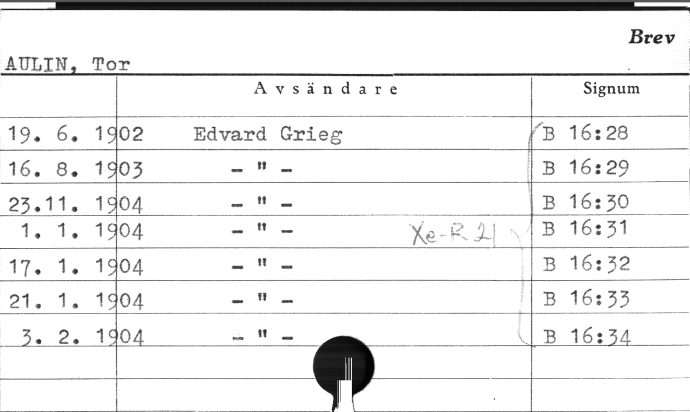 Brev
AULIN, Tor
Avsändare Signum
19. 6. 1902 Edvard Grieg B 16:28
16. 8. 1903 - " - B 16:29
23.11. 1904 - " - B 16:30
1. 1. 1904 - " - Xe-R 21 B 16:31
17. 1. 1904 - " - B 16:32
21. 1. 1904 - " - B 16:33
3. 2. 1904 - " - B 16:34